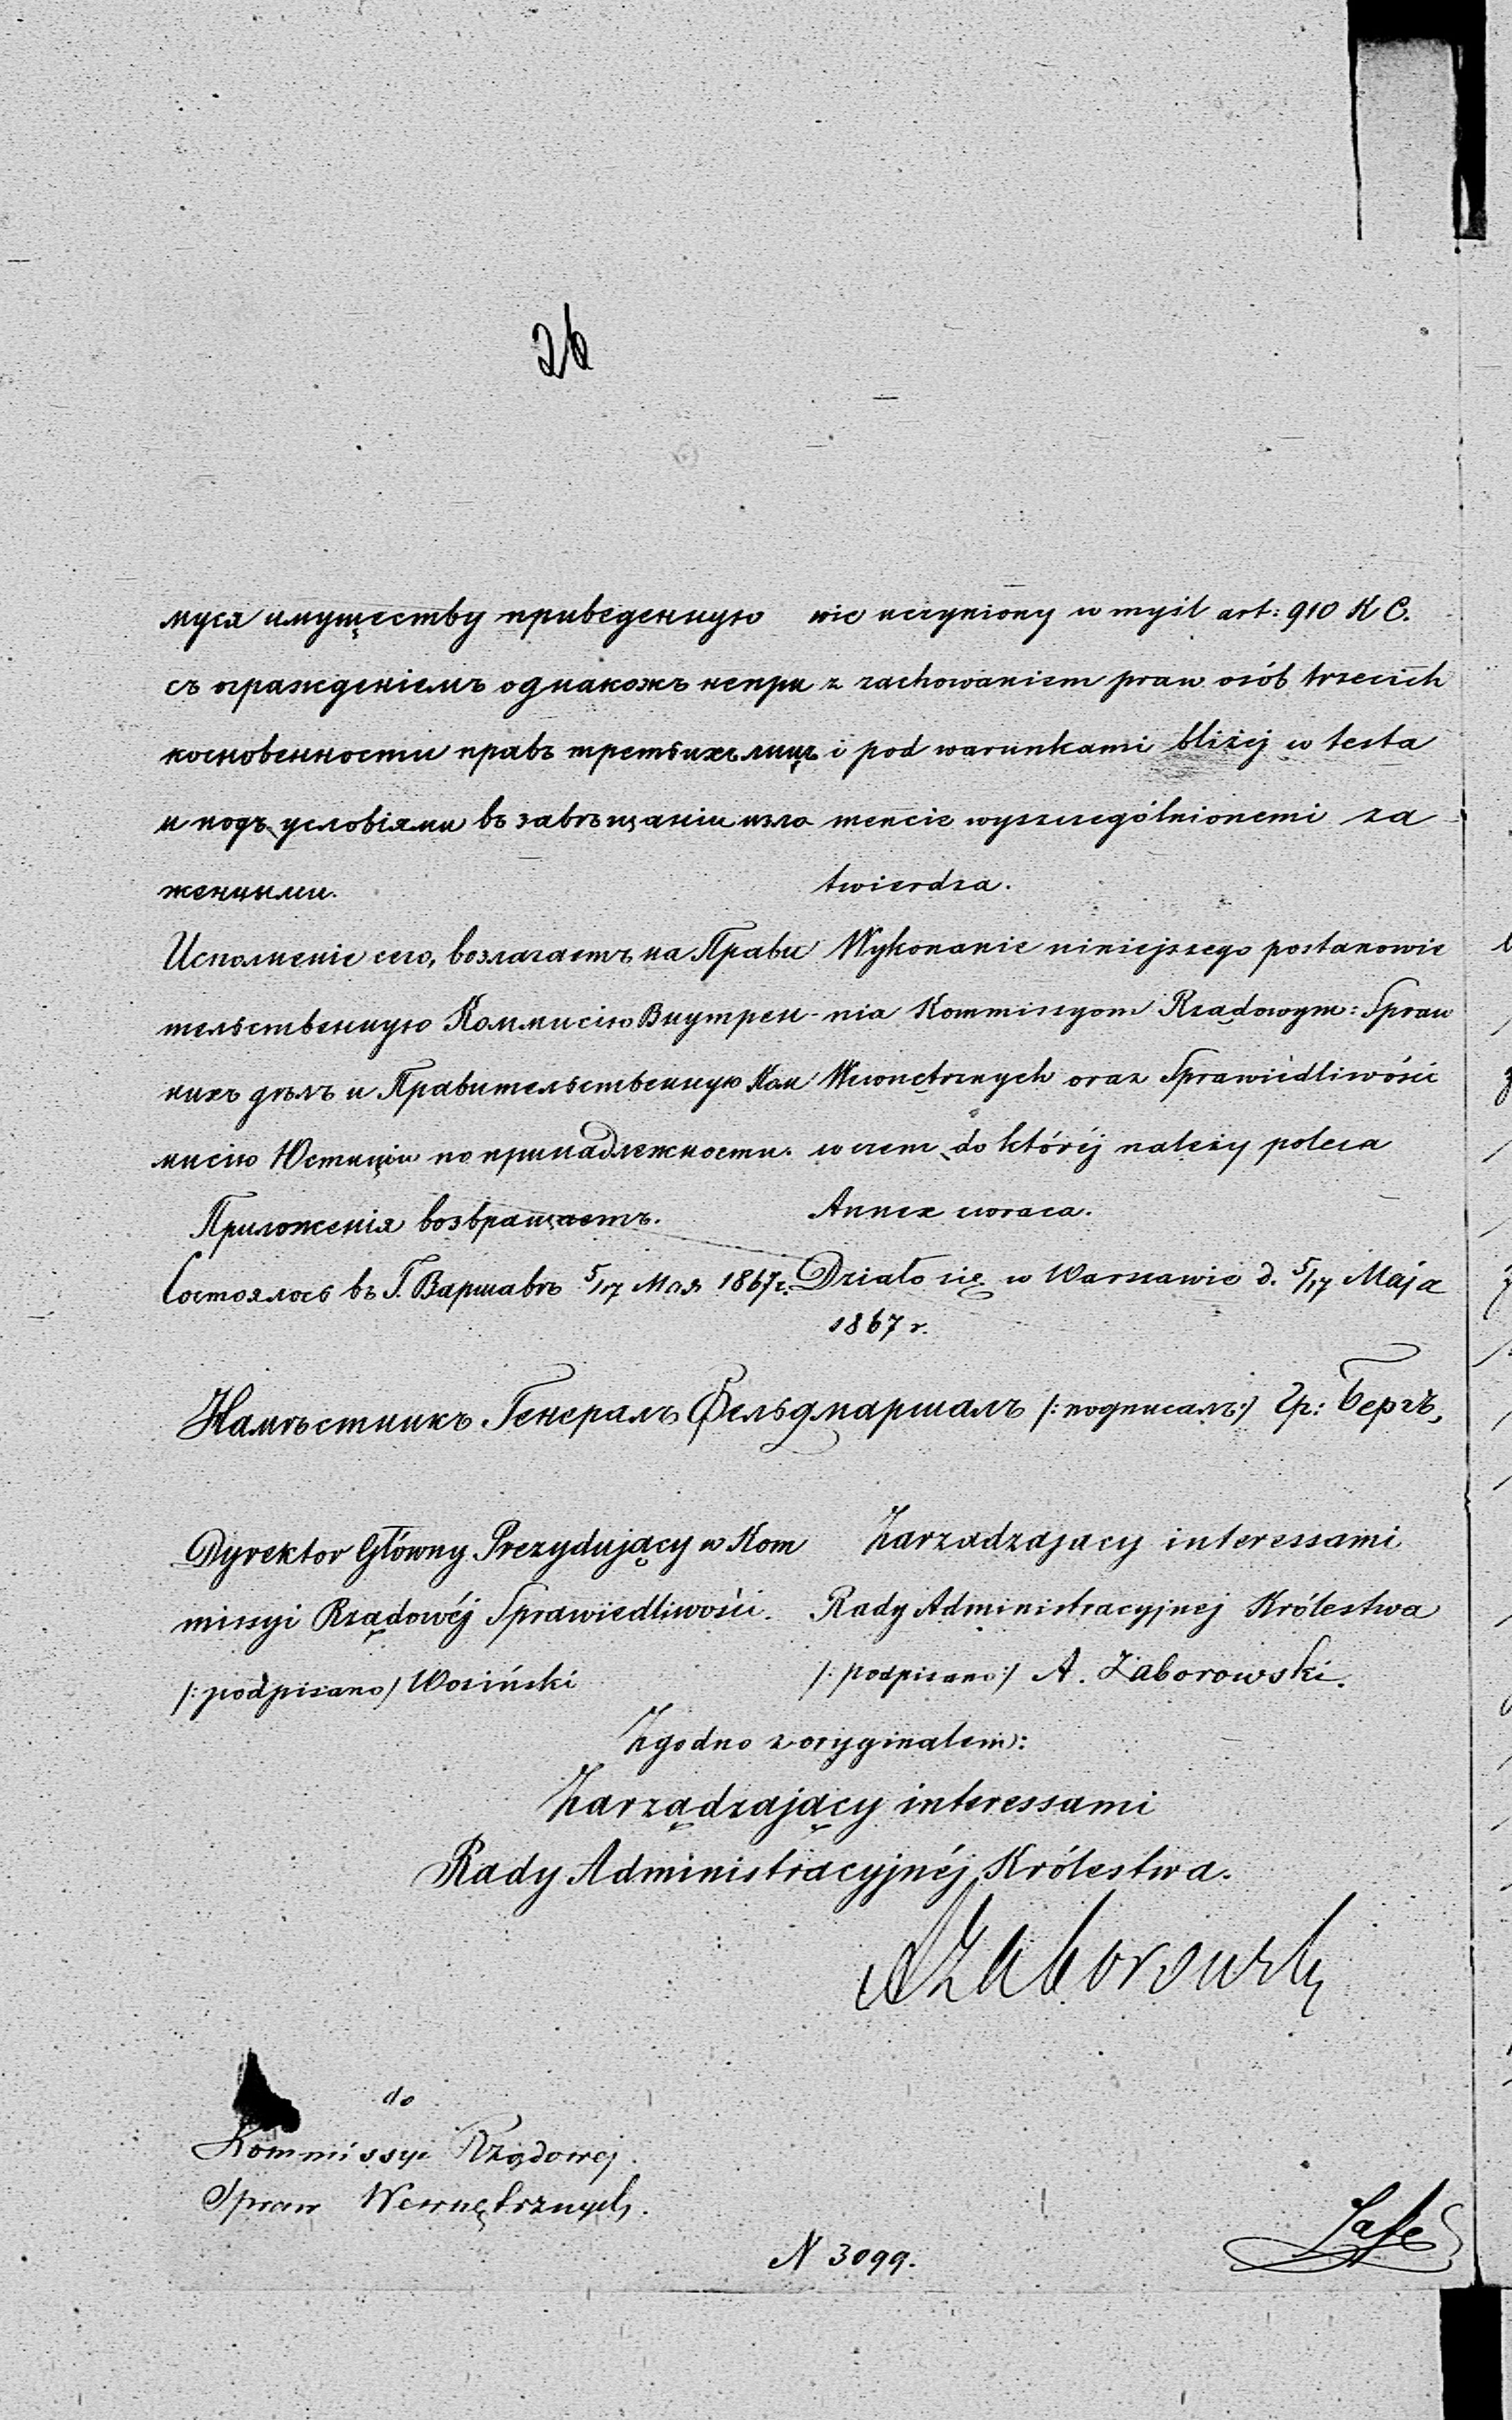 26
муся имуществу приведенную
съ огражденіемъ однакожъ непри
косновенности правъ третьихъ лицъ
и подъ условіями въ завѣщаніи изло
женными.
Исполненіе сего, возлагаетъ на Прави
тельственную Коммисію Внутрен-
нихъ дѣлъ и Правительственную Ком
мисію Юстиціи по принадлежности.
Приложенія возвращаетъ.
Состоялось въ Г. Варшавѣ 5/17 Мая 1867 г.
wie uczyniony w myśl art: 910 K C.
z zachowaniem praw osób trzecich
i pod warunkami bliżej w testa
mencie wyszczególnionemi za
twierdza.
Wykonanie niniejszego postanowie
nia Kommissyom Rządowym: Spraw
Wewnętrznych oraz Sprawiedliwości
w czem do której należy poleca
Annex zwraca.
Działo się w Warszawie d. 5/17 Maja
1867 r.
Намѣстникъ Генералъ Фельдмаршалъ /:подписалъ:/ Гр: Бергъ,
Dyrektor Główny Prezydujący w Kom
missyi Rządowéj Sprawiedliwości.
/:podpisano/ Wosiński
Zarządzający interessami
Rady Administracyjnej Królestwa
/:podpisano:/ A. Zaborowski.
Zgodno z oryginałem:
Zarządzający interessami
Rady Administracyjnéj Królestwa.
AZaborowski
do
Kommissyi Rządowej
Spraw Wewnętrznych.
N 3099.